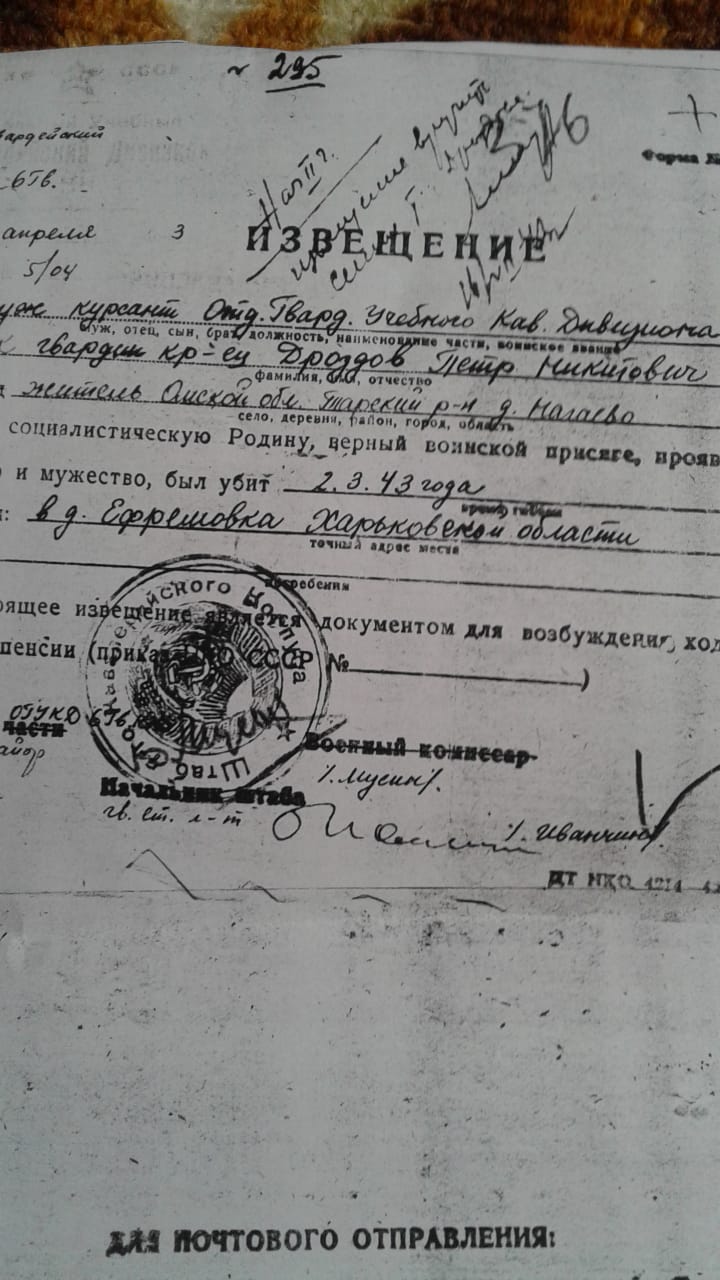 № 295
вардейский
6ГВ.
Форма №
апреля 3
5/04
ИЗВЕЩЕНИЕ
уж курсант Отд. Гвард. Учебного Кав. Дивизиона
муж, отец, сын, брат, должность, наименование части, воинское звание
гвардии кр-ец Дроздов Петр Никитович
фамилия, имя, отчество
житель Омской обл. Тарский р-н д. Нагаево
село, деревня, район, город, область
социалистическую Родину, верный воинской присяге, прояв
и мужество, был убит 2.3.43 года
время гибели
в д. Ефремовка Харьковской области
точный адрес места
погребения
оящее извещение является документом для возбуждения ход
пенсии (приказ НКО СССР №)
ОГУКД 6ГВ
части
айор
Военный комиссар
/.Мусин/.
Начальник штаба
гв. ст. л-т
/. Иванчин/
Штаб
ейского Корпуса
ДТ НКО 1214
ДЛЯ ПОЧТОВОГО ОТПРАВЛЕНИЯ: